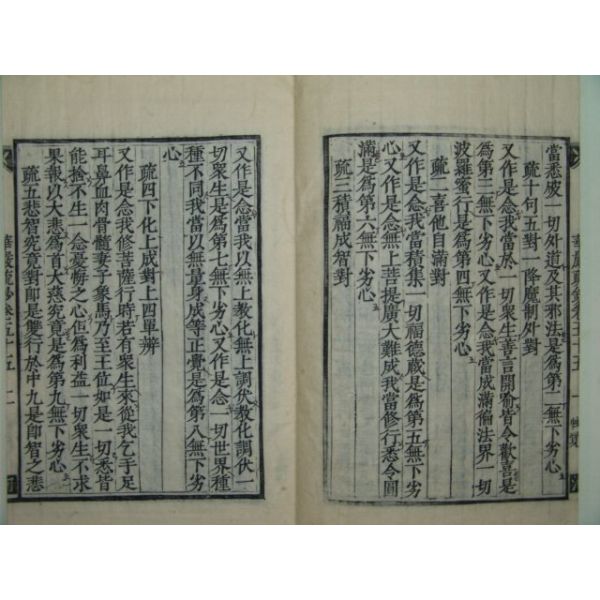 當悉破一切外道及其邪法是為第二無下劣心
疏十句五對一降魔制外對
又作是念我當於一切眾生善言開喻皆令歡喜是
為第三無下劣心又作是念我當成滿徧法界一切
波羅蜜行是為第四無下劣心
疏二喜他自滿對
又作是念我當積集一切福德藏是為第五無下劣
心又作是念無上菩提廣大難成我當修行悉令圓
滿是為第六無下劣心
疏三積福成智對
又作是念當我以無上教化無上調伏教化調伏一
切眾生是為第七無下劣心又作是念一切世界種
種不同我當以無量身成等正覺是為第八無下劣
心
疏四下化上成對上四單辨
又作是念我修菩薩行時若有眾生來從我乞手足
耳鼻血肉骨髓妻子象馬乃至王位如是一切悉皆
能捨不生一念憂悔之心但為利益一切眾生不求
果報以大悲為首大慈究竟是為第九無下劣心
疏五悲智究竟對即是雙行於中九是即智之悲